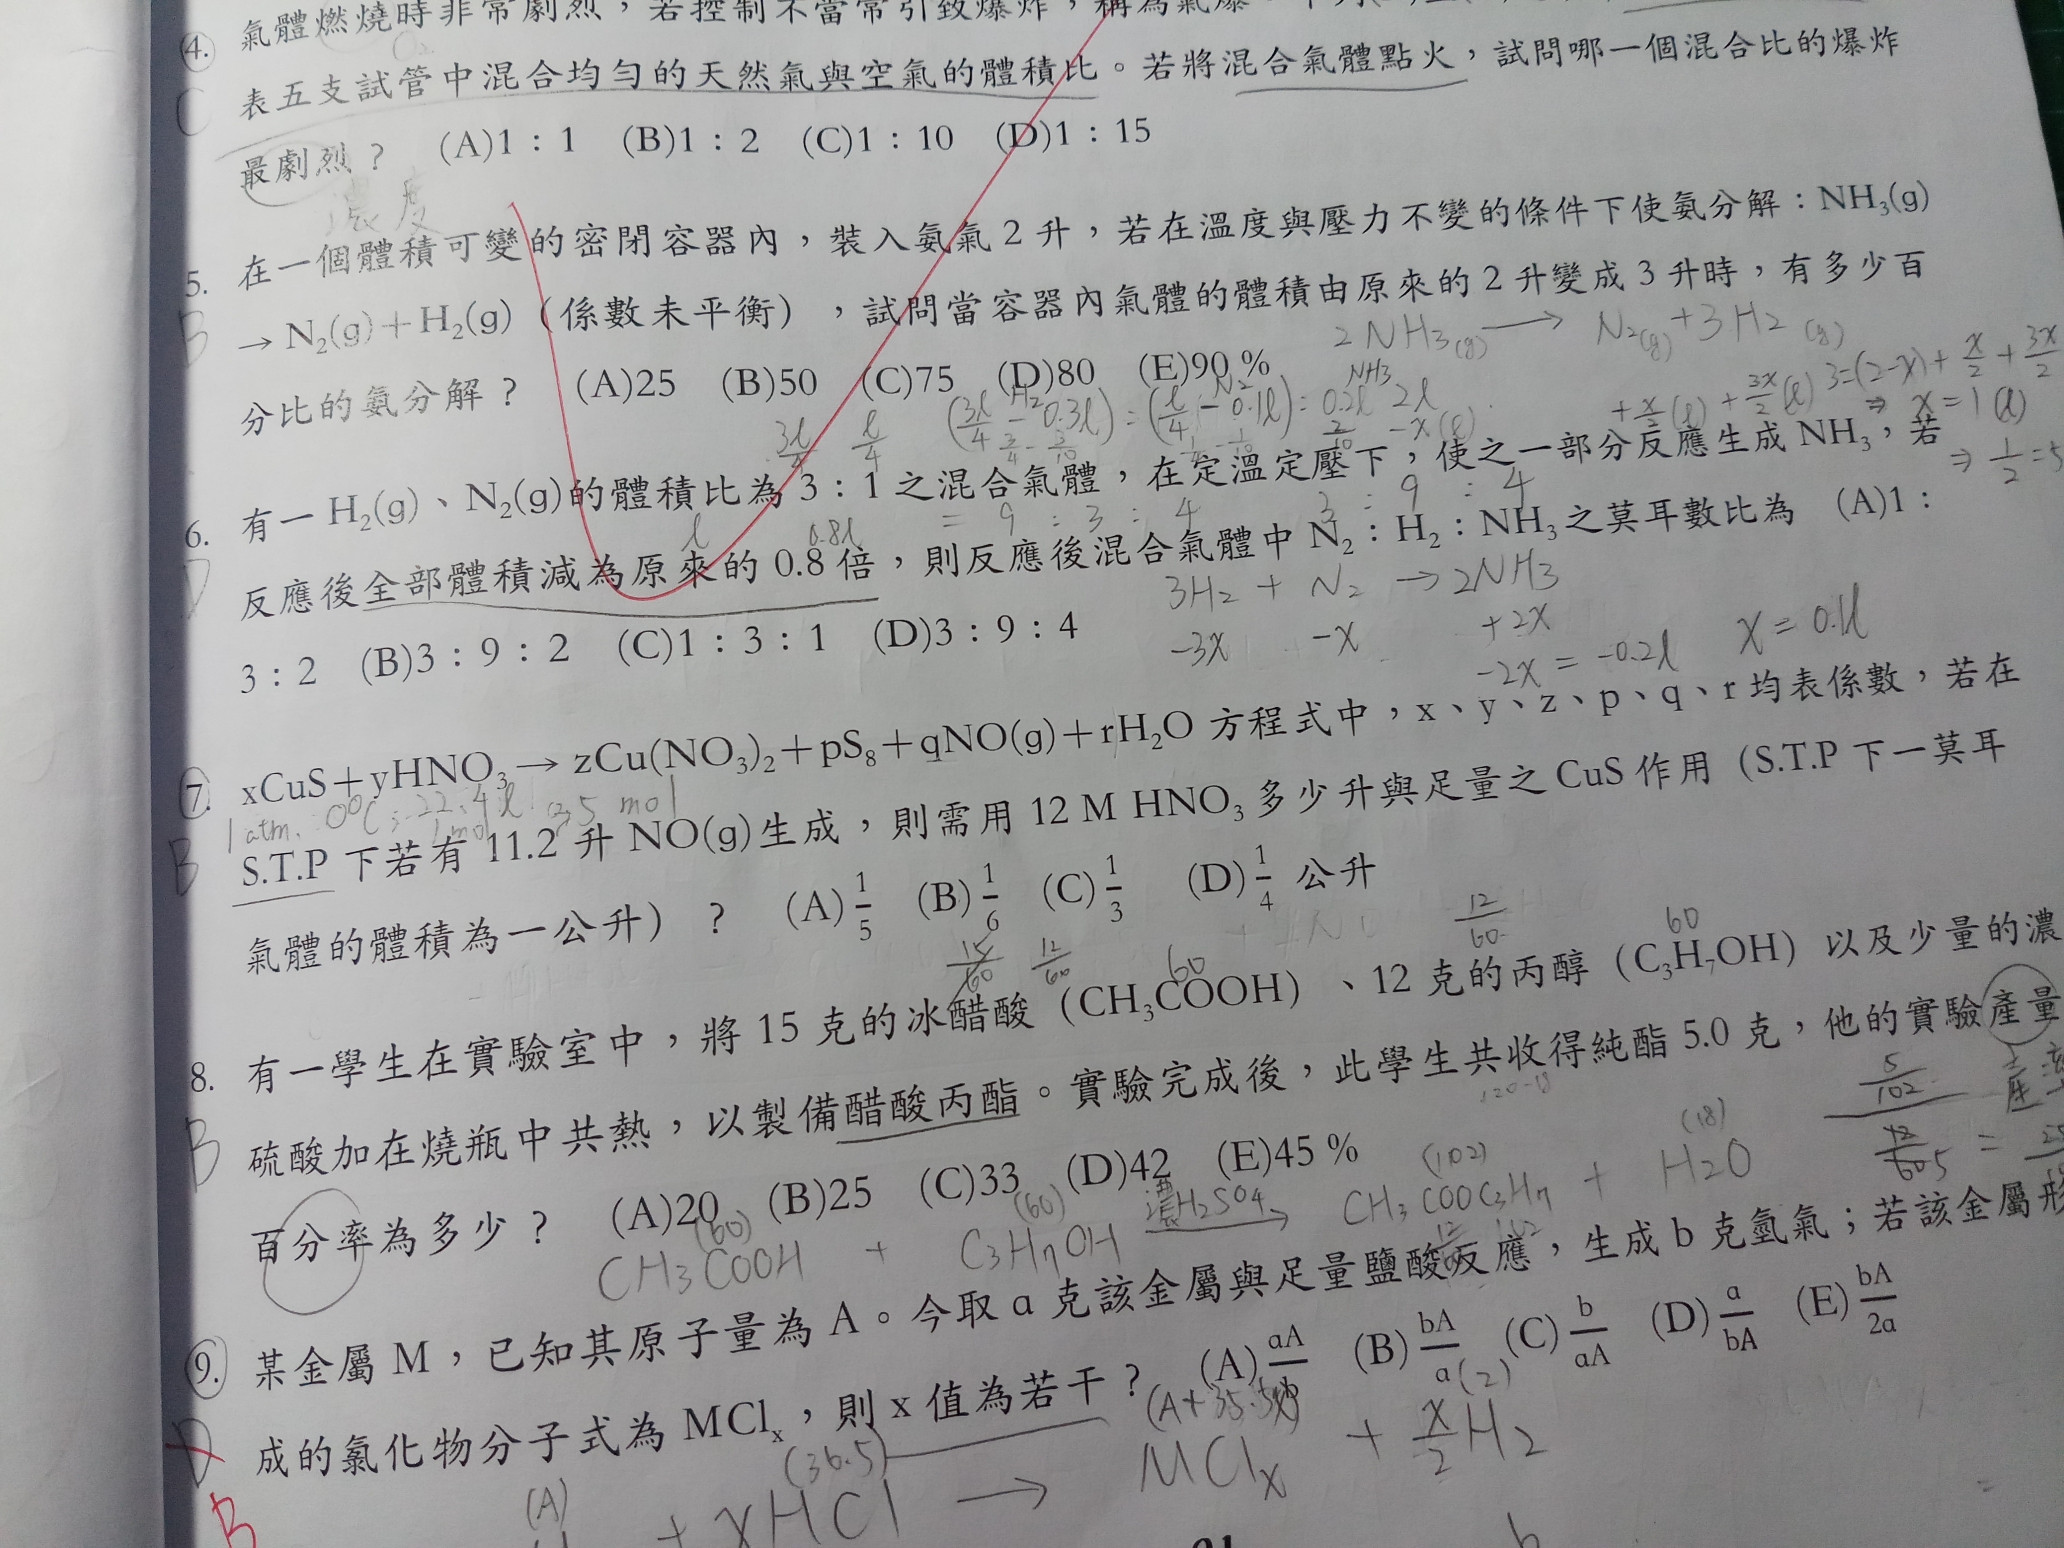 4. 氣體燃燒時非常劇烈，若控制不當常引致爆炸，稱為氣爆
表五支試管中混合均勻的天然氣與空氣的體積比。若將混合氣體點火，試問哪一個混合比的爆炸
C
最劇烈？ (A)1：1 (B)1：2 (C)1：10 (D)1：15
濃度
5. 在一個體積可變的密閉容器內，裝入氨氣2升，若在溫度與壓力不變的條件下使氨分解：NH₃(g)
B
→ N₂(g)＋H₂(g)（係數未平衡），試問當容器內氣體的體積由原來的2升變成3升時，有多少百
2NH₃(g) → N₂(g)+3H₂(g)
分比的氨分解？ (A)25 (B)50 (C)75 (D)80 (E)90％
3=(2-x)+x/2+3x/2
⇒ x=1(l)
6. 有一H₂(g)、N₂(g)的體積比為3：1之混合氣體，在定溫定壓下，使之一部分反應生成NH₃，若
= 9 : 3 : 4 3 : 9 : 4
l 0.8l
D
反應後全部體積減為原來的0.8倍，則反應後混合氣體中N₂：H₂：NH₃之莫耳數比為 (A)1：
3H₂ + N₂ → 2NH₃
3：2 (B)3：9：2 (C)1：3：1 (D)3：9：4
-3x -x +2x
-2x = -0.2l x=0.1l
7. xCuS＋yHNO₃→ zCu(NO₃)₂＋pS₈＋qNO(g)＋rH₂O 方程式中，x、y、z、p、q、r均表係數，若在
B
S.T.P 下若有11.2升NO(g)生成，則需用12 M HNO₃多少升與足量之CuS作用（S.T.P 下一莫耳
氣體的體積為一公升）？ (A)1/5 (B)1/6 (C)1/3 (D)1/4 公升
15/60 12/60 60 12/60 60
8. 有一學生在實驗室中，將15克的冰醋酸（CH₃COOH）、12克的丙醇（C₃H₇OH）以及少量的濃
B
硫酸加在燒瓶中共熱，以製備醋酸丙酯。實驗完成後，此學生共收得純酯5.0克，他的實驗產量
百分率為多少？ (A)20 (B)25 (C)33 (D)42 (E)45％
(60) (60) (102) (18)
CH₃COOH + C₃H₇OH 濃H₂SO₄ → CH₃COOC₃H₇ + H₂O
9. 某金屬M，已知其原子量為A。今取a克該金屬與足量鹽酸反應，生成b克氫氣；若該金屬形
D
成的氯化物分子式為MClₓ，則x值為若干？ (A)aA/b (B)bA/a (C)b/aA (D)a/bA (E)bA/2a
B
(A) (36.5) (A+35.5x) (2)
+ xHCl → MClₓ + x/2 H₂
b